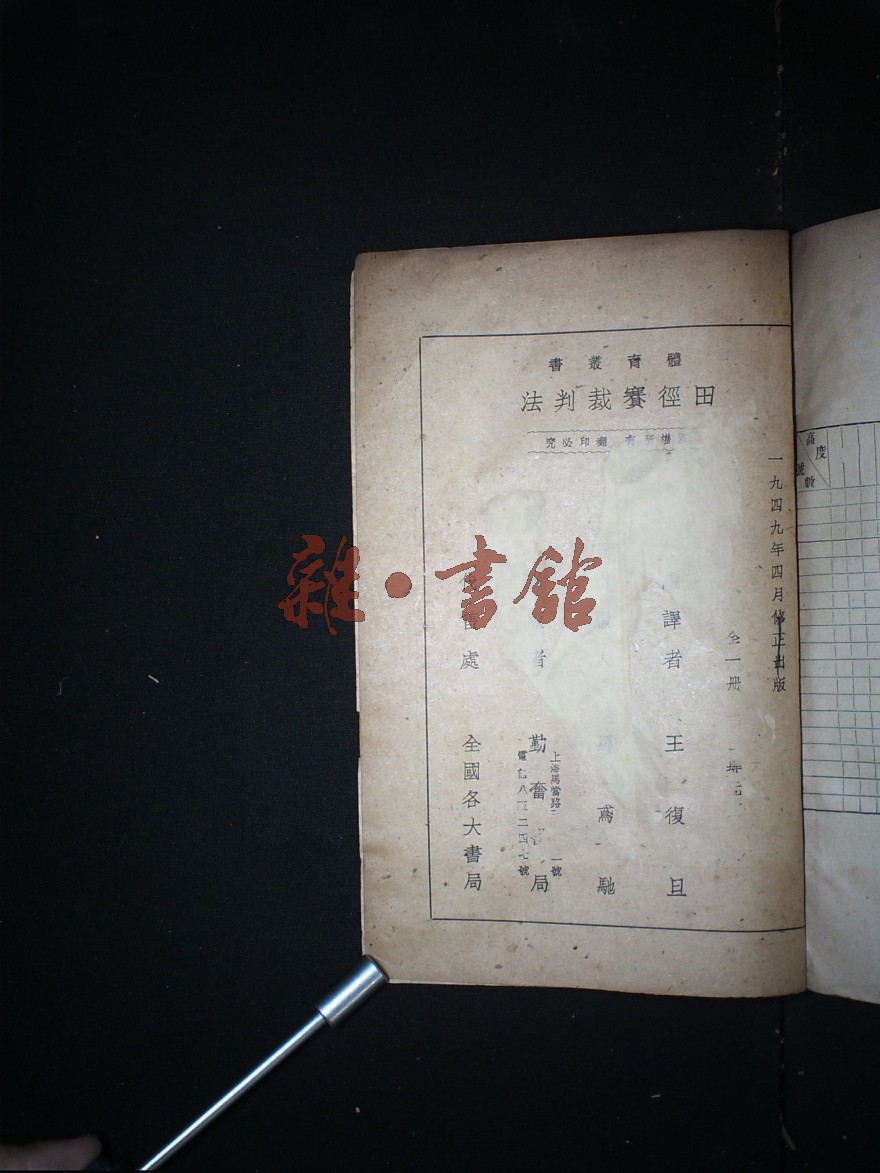 體育叢書
田徑賽裁判法
翻印必究
一九四九年四月修正出版
全一冊
譯者 王復旦
鳶馳
者 勤奮 局
上海馬當路 號
電 八 二四 號
售處 全國各大書局
高度
號數
雜·書館